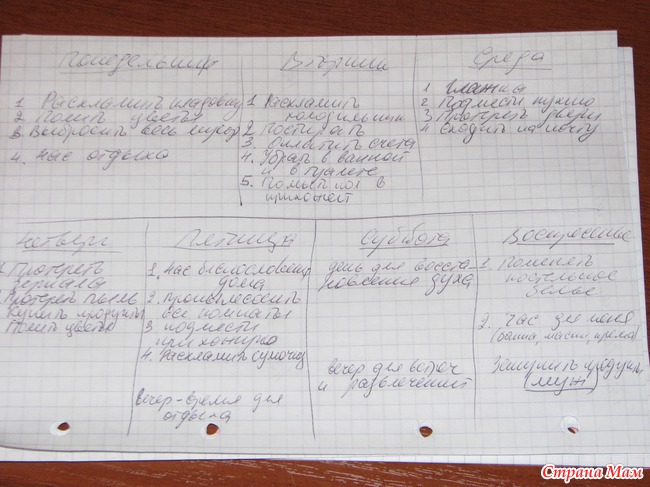 Понедельник
1 Расхламить кладовку
2 Полить цветы
3 Выбросить весь мусор
4. Час отдыха
Вторник
1 Расхламить
холодильник
2 Постирать
3. Оплатить счета
4. Убрать в ванной
и в туалете
5. Помыть пол в
прихожей
Среда
1 Глажка
2 Подмести кухню
3 Протереть двери
4 Сходить на почту
Четверг
1 Протереть
зеркала
Протереть пыль
Купить продукты
Полить цветы
Пятница
1. Час благословения
дома
2. Пропылесосить
все комнаты
3 подмести
прихожую
4. Расхламить сумочку
вечер-время для
отдыха
Суббота
день для восста-
новления духа
вечер для встреч
и развлечений
Воскресенье
1. Поменять
постельное
белье
2. Час для меня
(ванна, маски, крема)
Закупить продукты
(муж)
Страна Мам